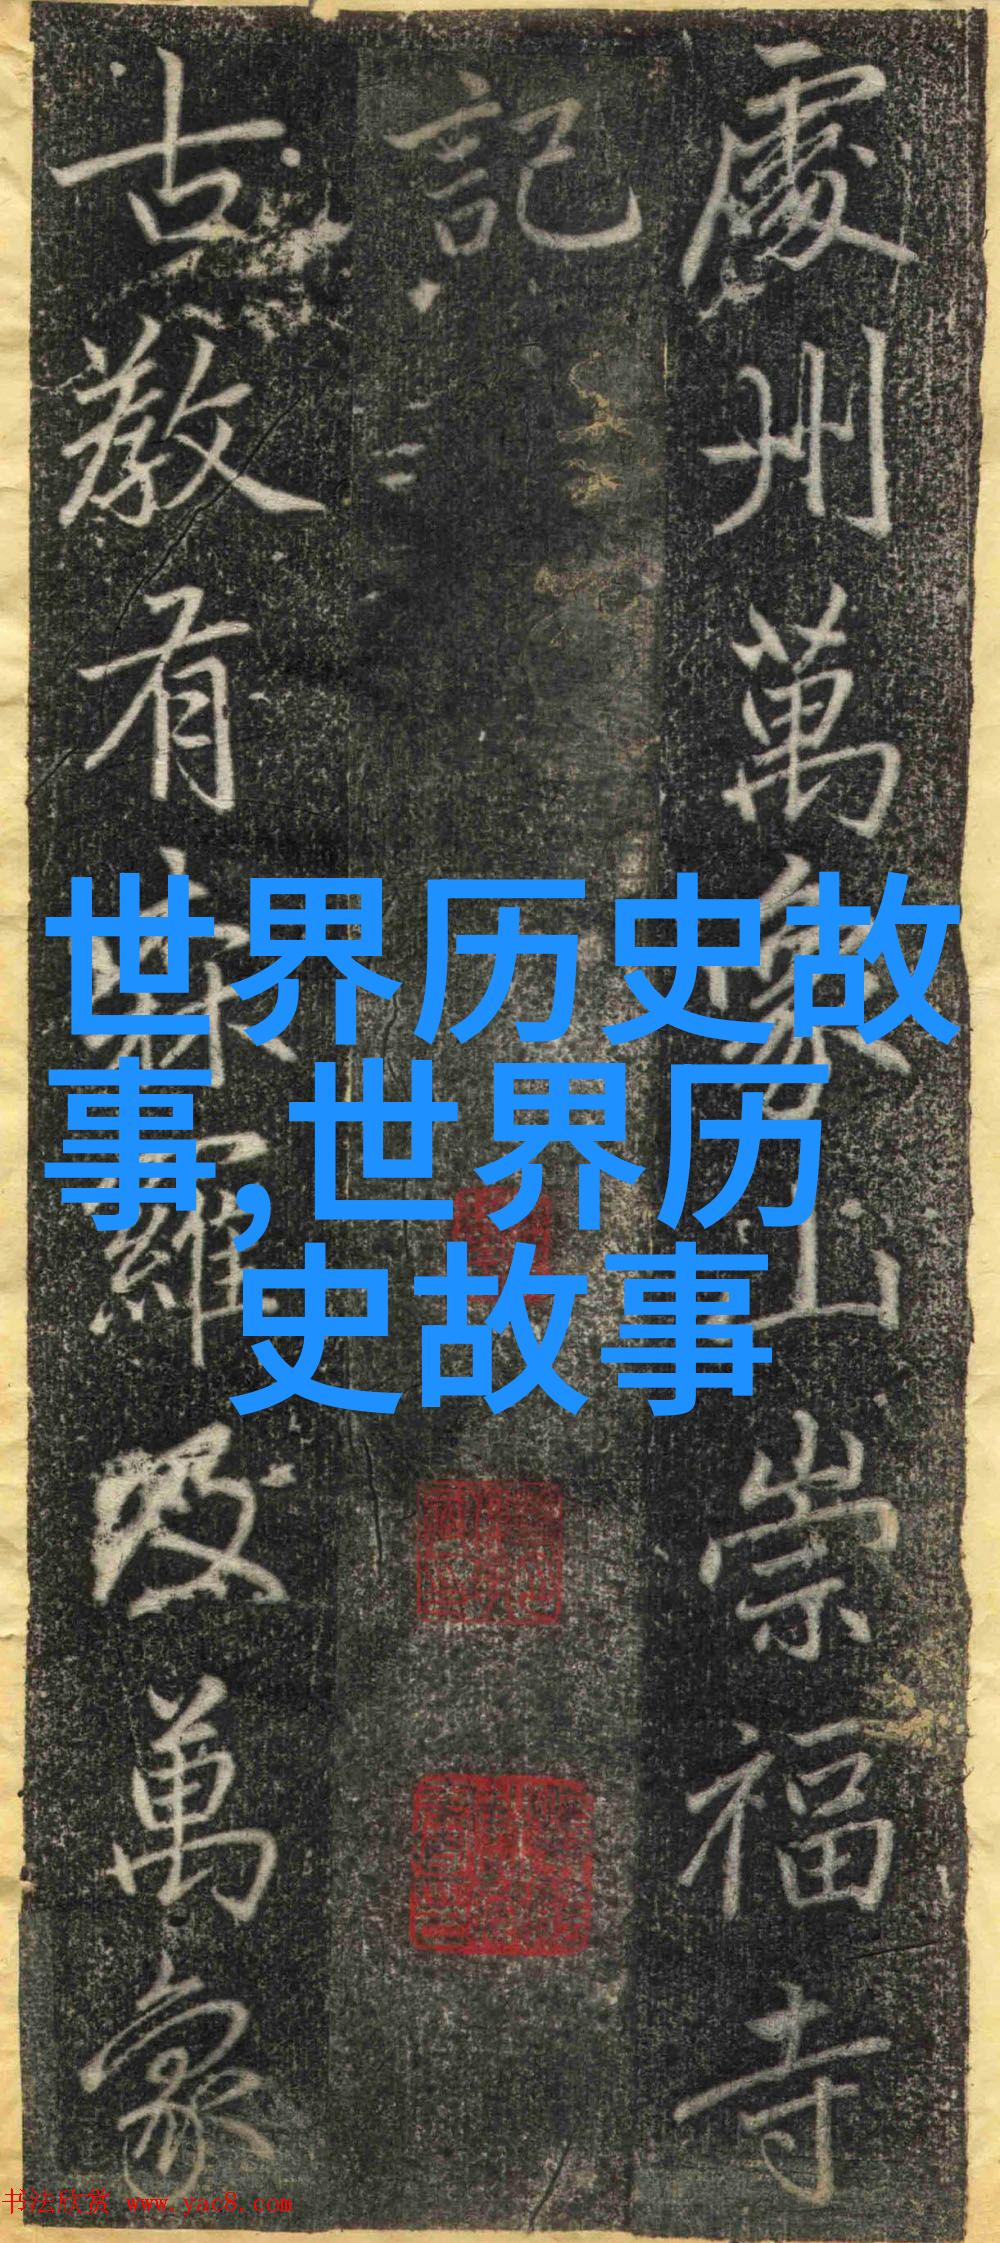 處州萬象山崇福寺
記
古教有𠕋羅及萬象
世界历史故
事,世界历
史故事
书法欣赏 www.yac8.com